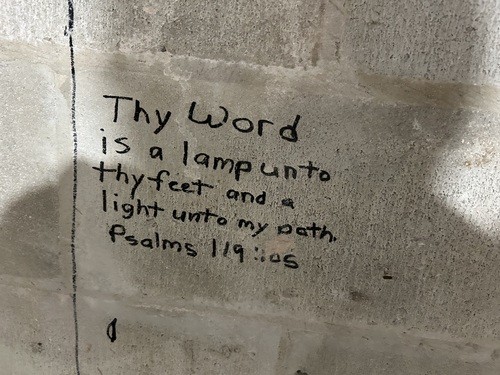 Thy Word
is a lamp unto
thy feet and a
light unto my path.
Psalms 119:105